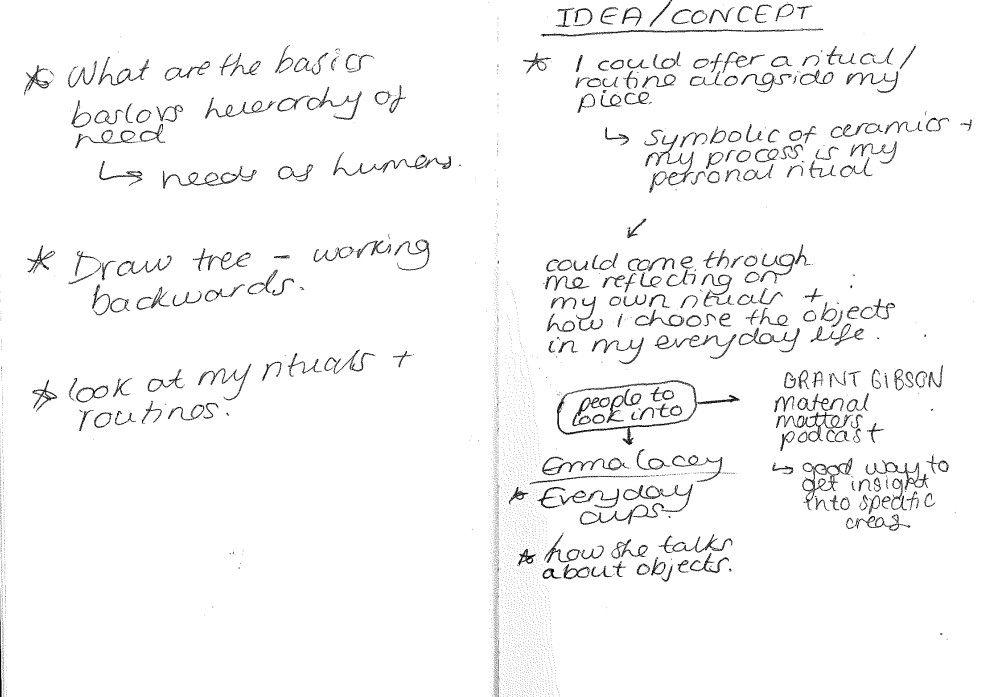 * What are the basics
baslovs heierarchy of
need
↳ needs as humans.
* Draw tree - working
backwards.
* look at my rituals +
routines.
IDEA/CONCEPT
* I could offer a ritual/
routine alongside my
piece.
↳ symbolic of ceramics +
my process is my
personal ritual
↙
could come through
me reflecting on
my own rituals +
how I choose the objects
in my everyday life.
people to
look into
GRANT GIBSON
material
matters
podcast
↳ good way to
get insight
into specific
areas
Emma Lacey
* Everyday
cups.
* how she talks
about objects.